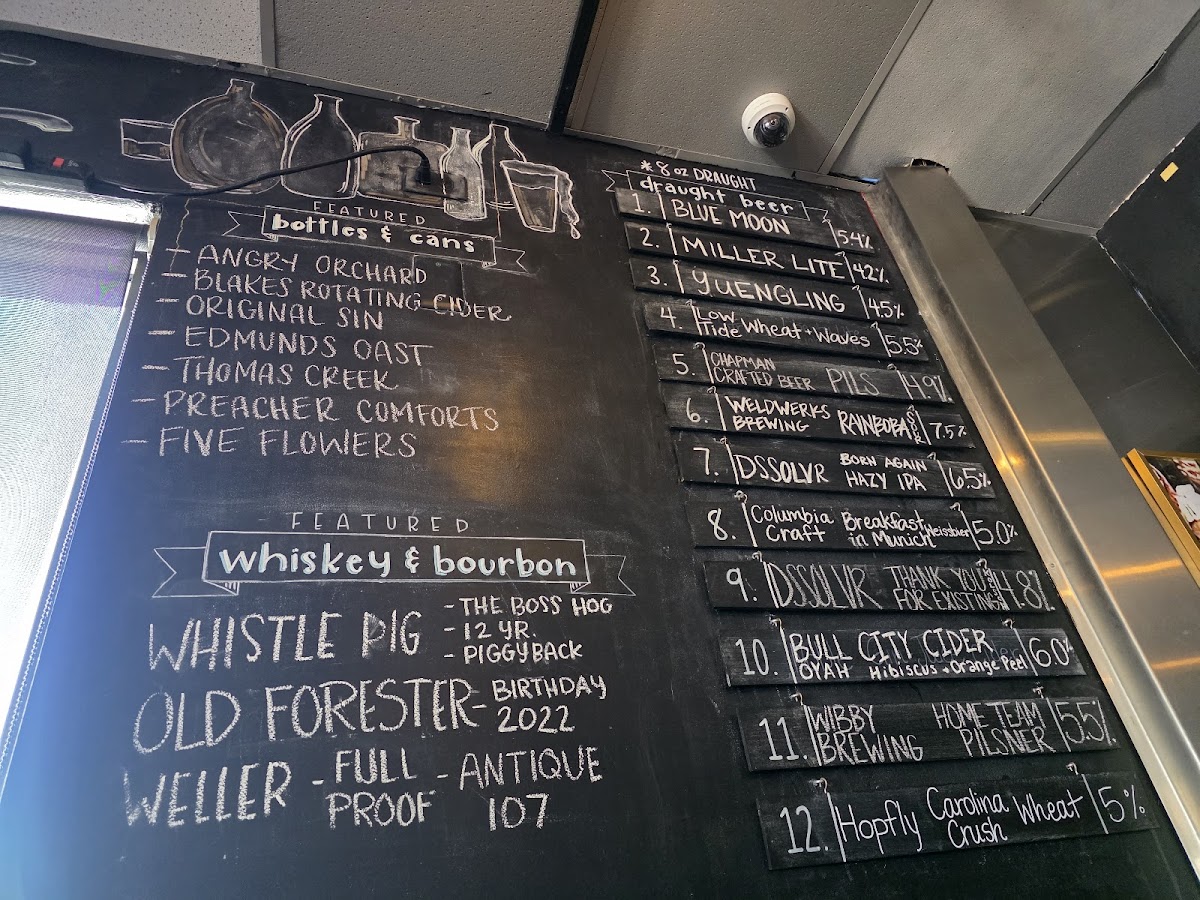 FEATURED
bottles & cans
- ANGRY ORCHARD
- BLAKES ROTATING CIDER
- ORIGINAL SIN
- EDMUNDS OAST
- THOMAS CREEK
- PREACHER COMFORTS
- FIVE FLOWERS
FEATURED
whiskey & bourbon
WHISTLE PIG
- THE BOSS HOG
- 12 YR.
- PIGGYBACK
OLD FORESTER-
BIRTHDAY
2022
WELLER - FULL PROOF - ANTIQUE 107
*8 oz DRAUGHT
draught beer
1. BLUE MOON 5.4%
2. MILLER LITE 4.2%
3. YUENGLING 4.5%
4. Low Tide Wheat + Waves 5.5%
5. CHAPMAN CRAFTED BEER PILS 4.9%
6. WELDWERKS BREWING RAINBOBA SOUR 7.5%
7. DSSOLVR BORN AGAIN HAZY IPA 6.5%
8. Columbia Craft Breakfast in Munich Weissbier 5.0%
9. DSSOLVR THANK YOU FOR EXISTING 4.8%
10. BULL CITY CIDER OYAH Hibiscus + Orange Peel 6.0%
11. WIBBY BREWING HOME TEAM PILSNER 5.5%
12. Hopfly Carolina Crush Wheat 5%